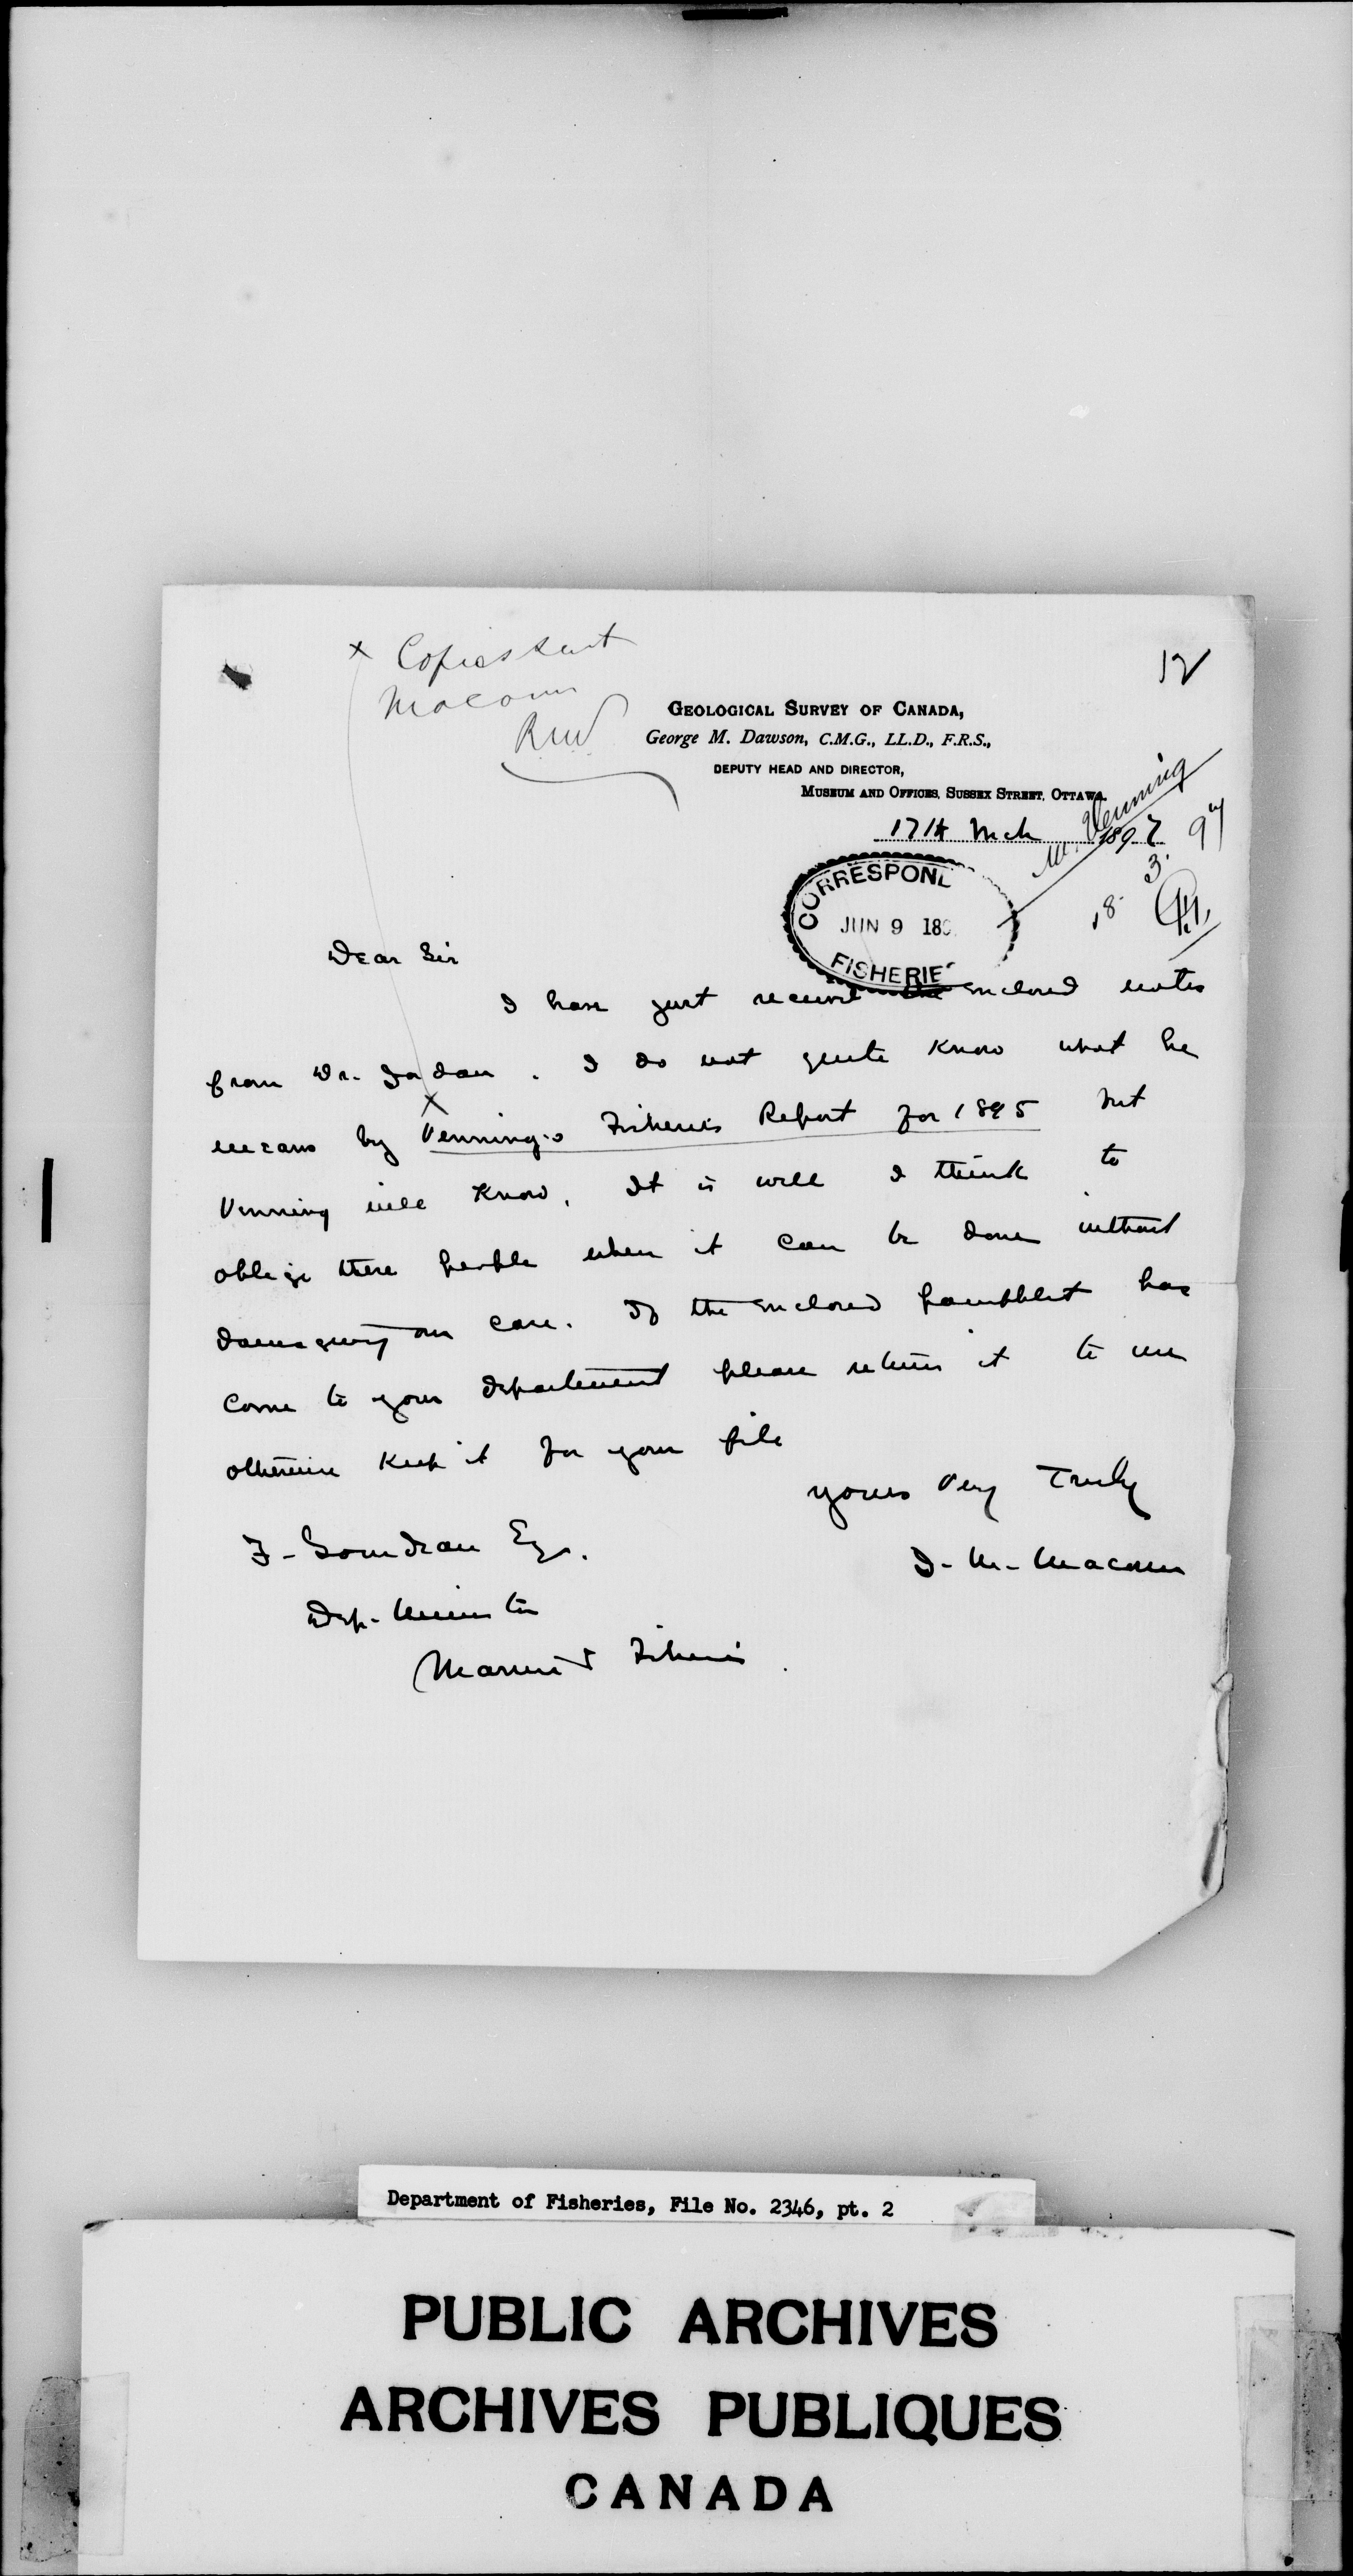 x Copies sent
Macoun
RNV
12
GEOLOGICAL SURVEY OF CANADA,
George M. Dawson, C.M.G., LL.D., F.R.S.,
DEPUTY HEAD AND DIRECTOR,
MUSEUM AND OFFICES, SUSSEX STREET, OTTAWA.
17th Mch 1897
Mr. Venning
18. 3. 97
CORRESPOND
JUN 9 189
FISHERIE
Dear Sir
I have just received the enclosed notes
from Dr. Jordan. I do not quite know what he
means by Venning's Fisheries Report for 1895 but
Venning will know. It is well I think to
oblige these people when it can be done without
damaging our case. If the enclosed pamphlet has
come to your department please return it to me
otherwise keep it for your file
yours very truly
J. M. Macoun
F. Gourdeau Esq.
Dep. Minister
Marine & Fisheries.
Department of Fisheries, File No. 2346, pt. 2
PUBLIC ARCHIVES
ARCHIVES PUBLIQUES
CANADA